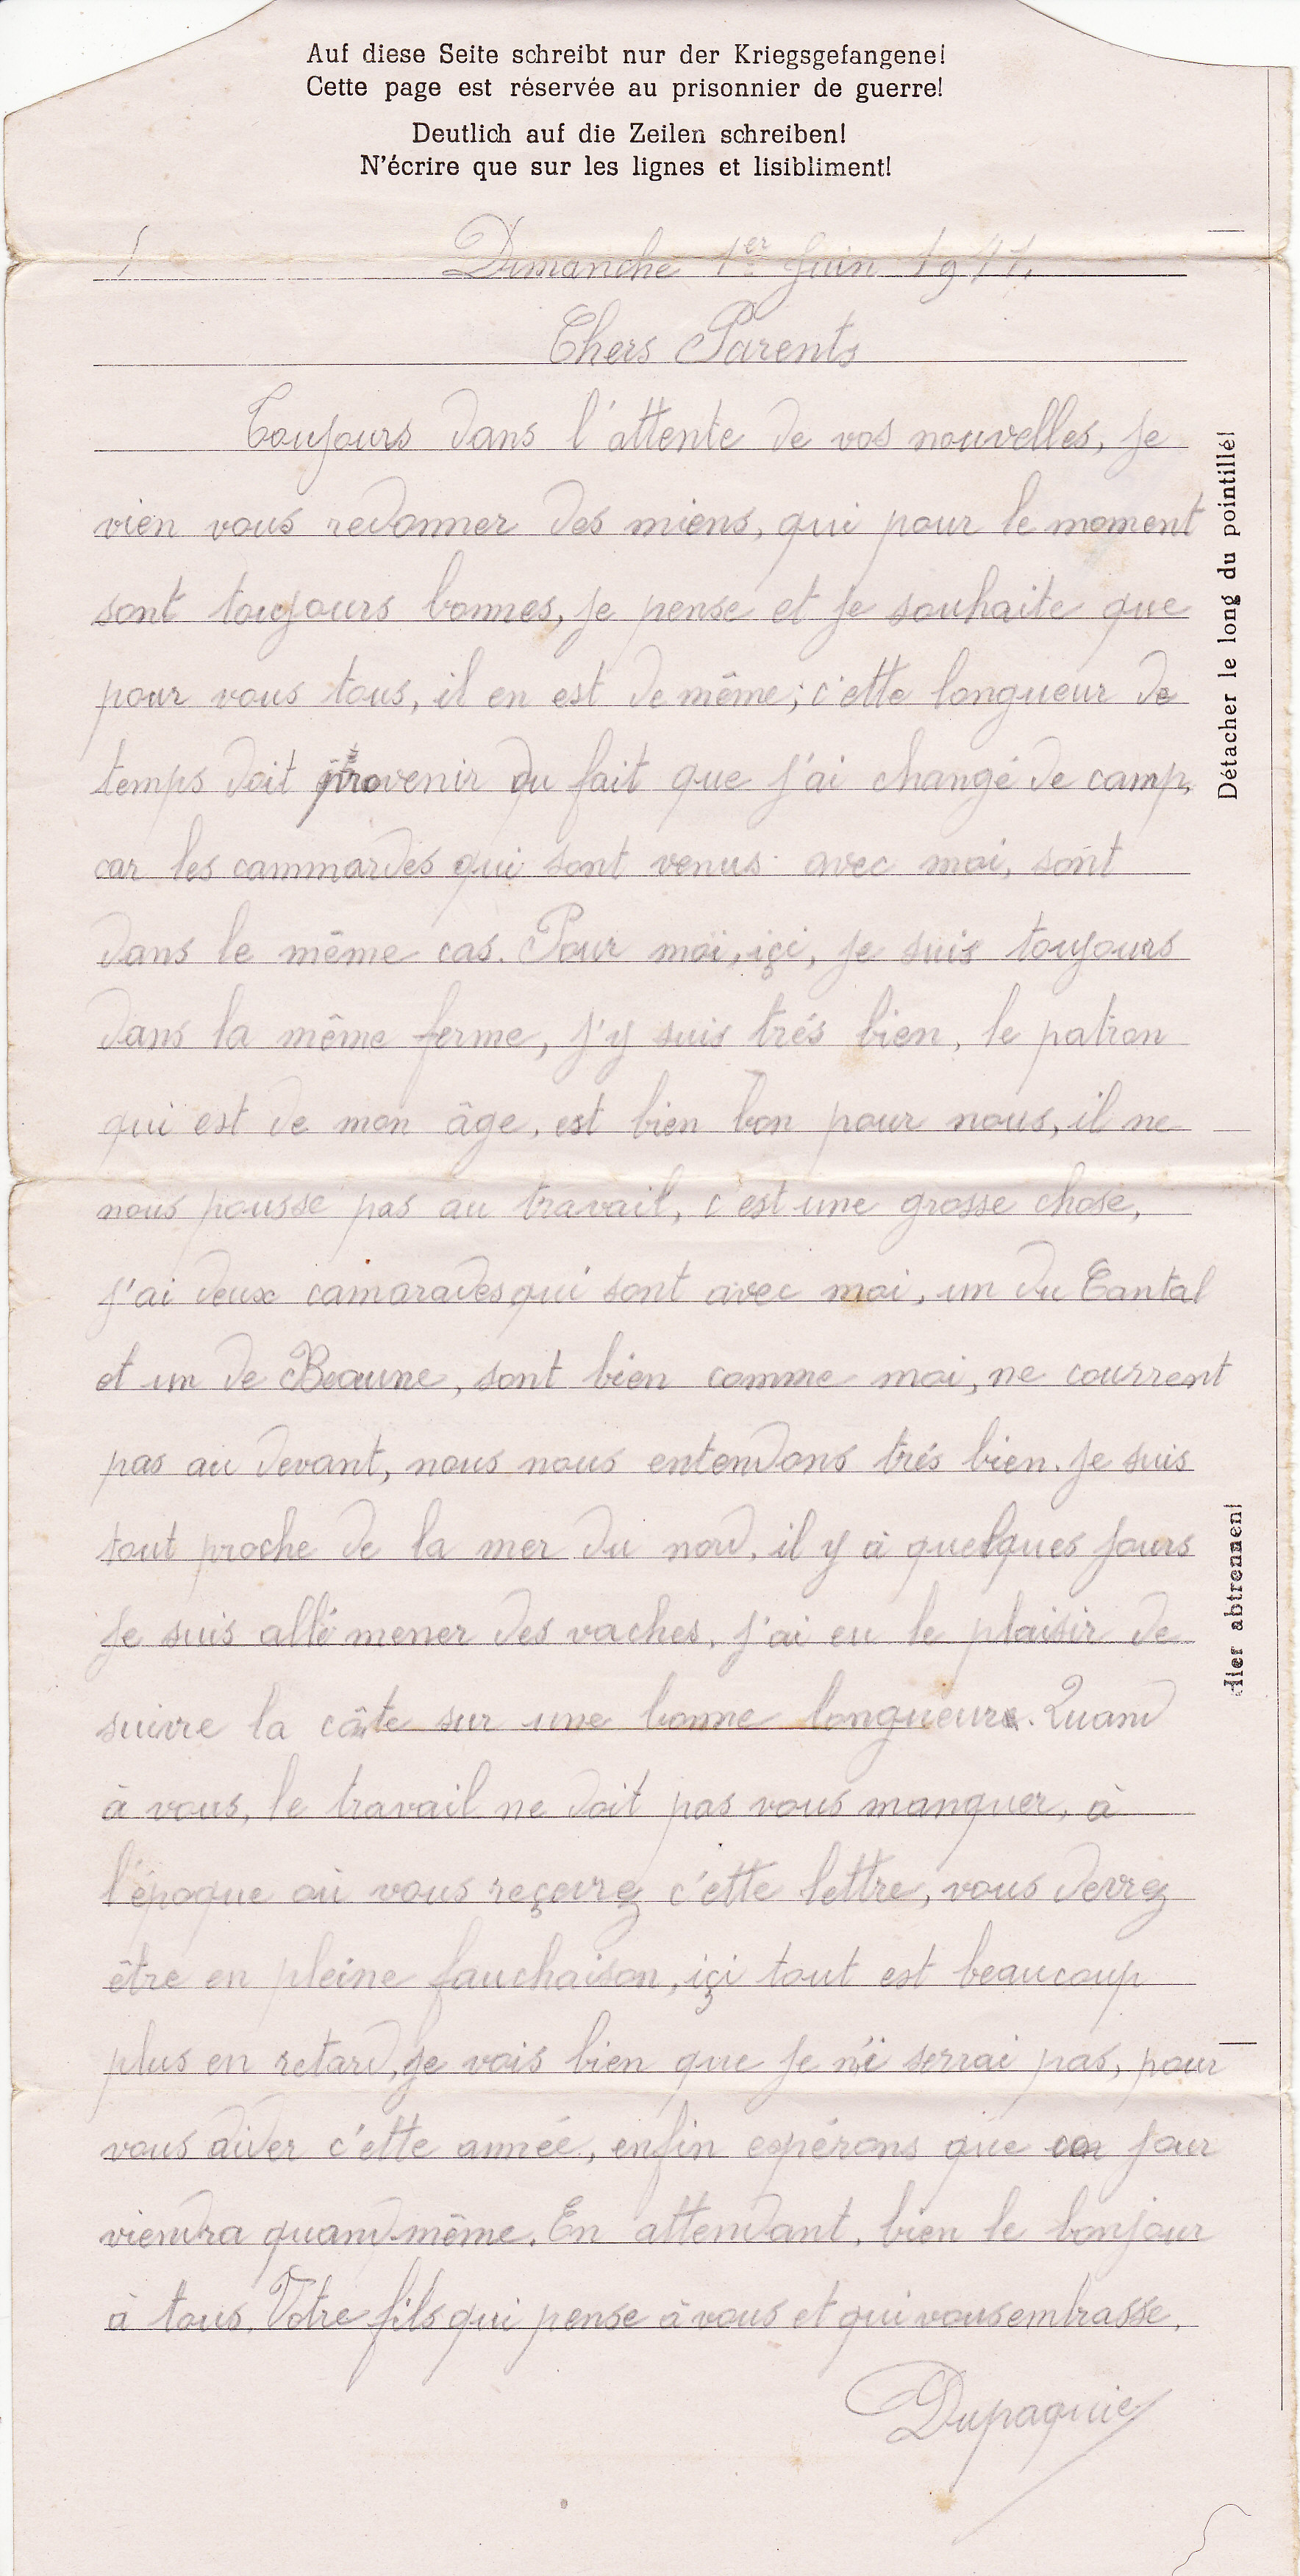 Auf diese Seite schreibt nur der Kriegsgefangene!
Cette page est réservée au prisonnier de guerre!
Deutlich auf die Zeilen schreiben!
N'écrire que sur les lignes et lisibliment!
Dimanche 1er Juin 1941.
Chers Parents
Toujours dans l'attente de vos nouvelles, je
vien vous redonner des miens, qui pour le moment
sont toujours bonnes, je pense et je souhaite que
pour vous tous, il en est de même; c'ette longueur de
temps doit provenir du fait que j'ai changé de camp,
car les cammardes qui sont venus avec moi, sont
dans le même cas. Pour moi, içi, je suis toujours
dans la même ferme, j'y suis trés bien, le patron
qui est de mon âge, est bien bon pour nous, il ne
nous pousse pas au travail, c'est une grosse chose,
j'ai deux camarades qui sont avec moi, un du Cantal
et un de Beaune, sont bien comme moi, ne courrent
pas au devant, nous nous entendons trés bien. Je suis
tout proche de la mer du nord, il y à quelques jours
je suis allé mener des vaches, j'ai eu le plaisir de
suivre la côte sur une bonne longueur. Quand
à vous, le travail ne doit pas vous manquer, à
l'époque où vous reçevrez c'ette lettre, vous devrez
être en pleine fauchaison, içi tout est beaucoup
plus en retard, je vois bien que je n'i serrai pas, pour
vous aider c'ette année, enfin espérons que jour
viendra quand-même. En attendant, bien le bonjour
à tous. Votre fils qui pense à vous et qui vous embrasse.
Dupaquie
Détacher le long du pointillé!
Hier abtrennen!